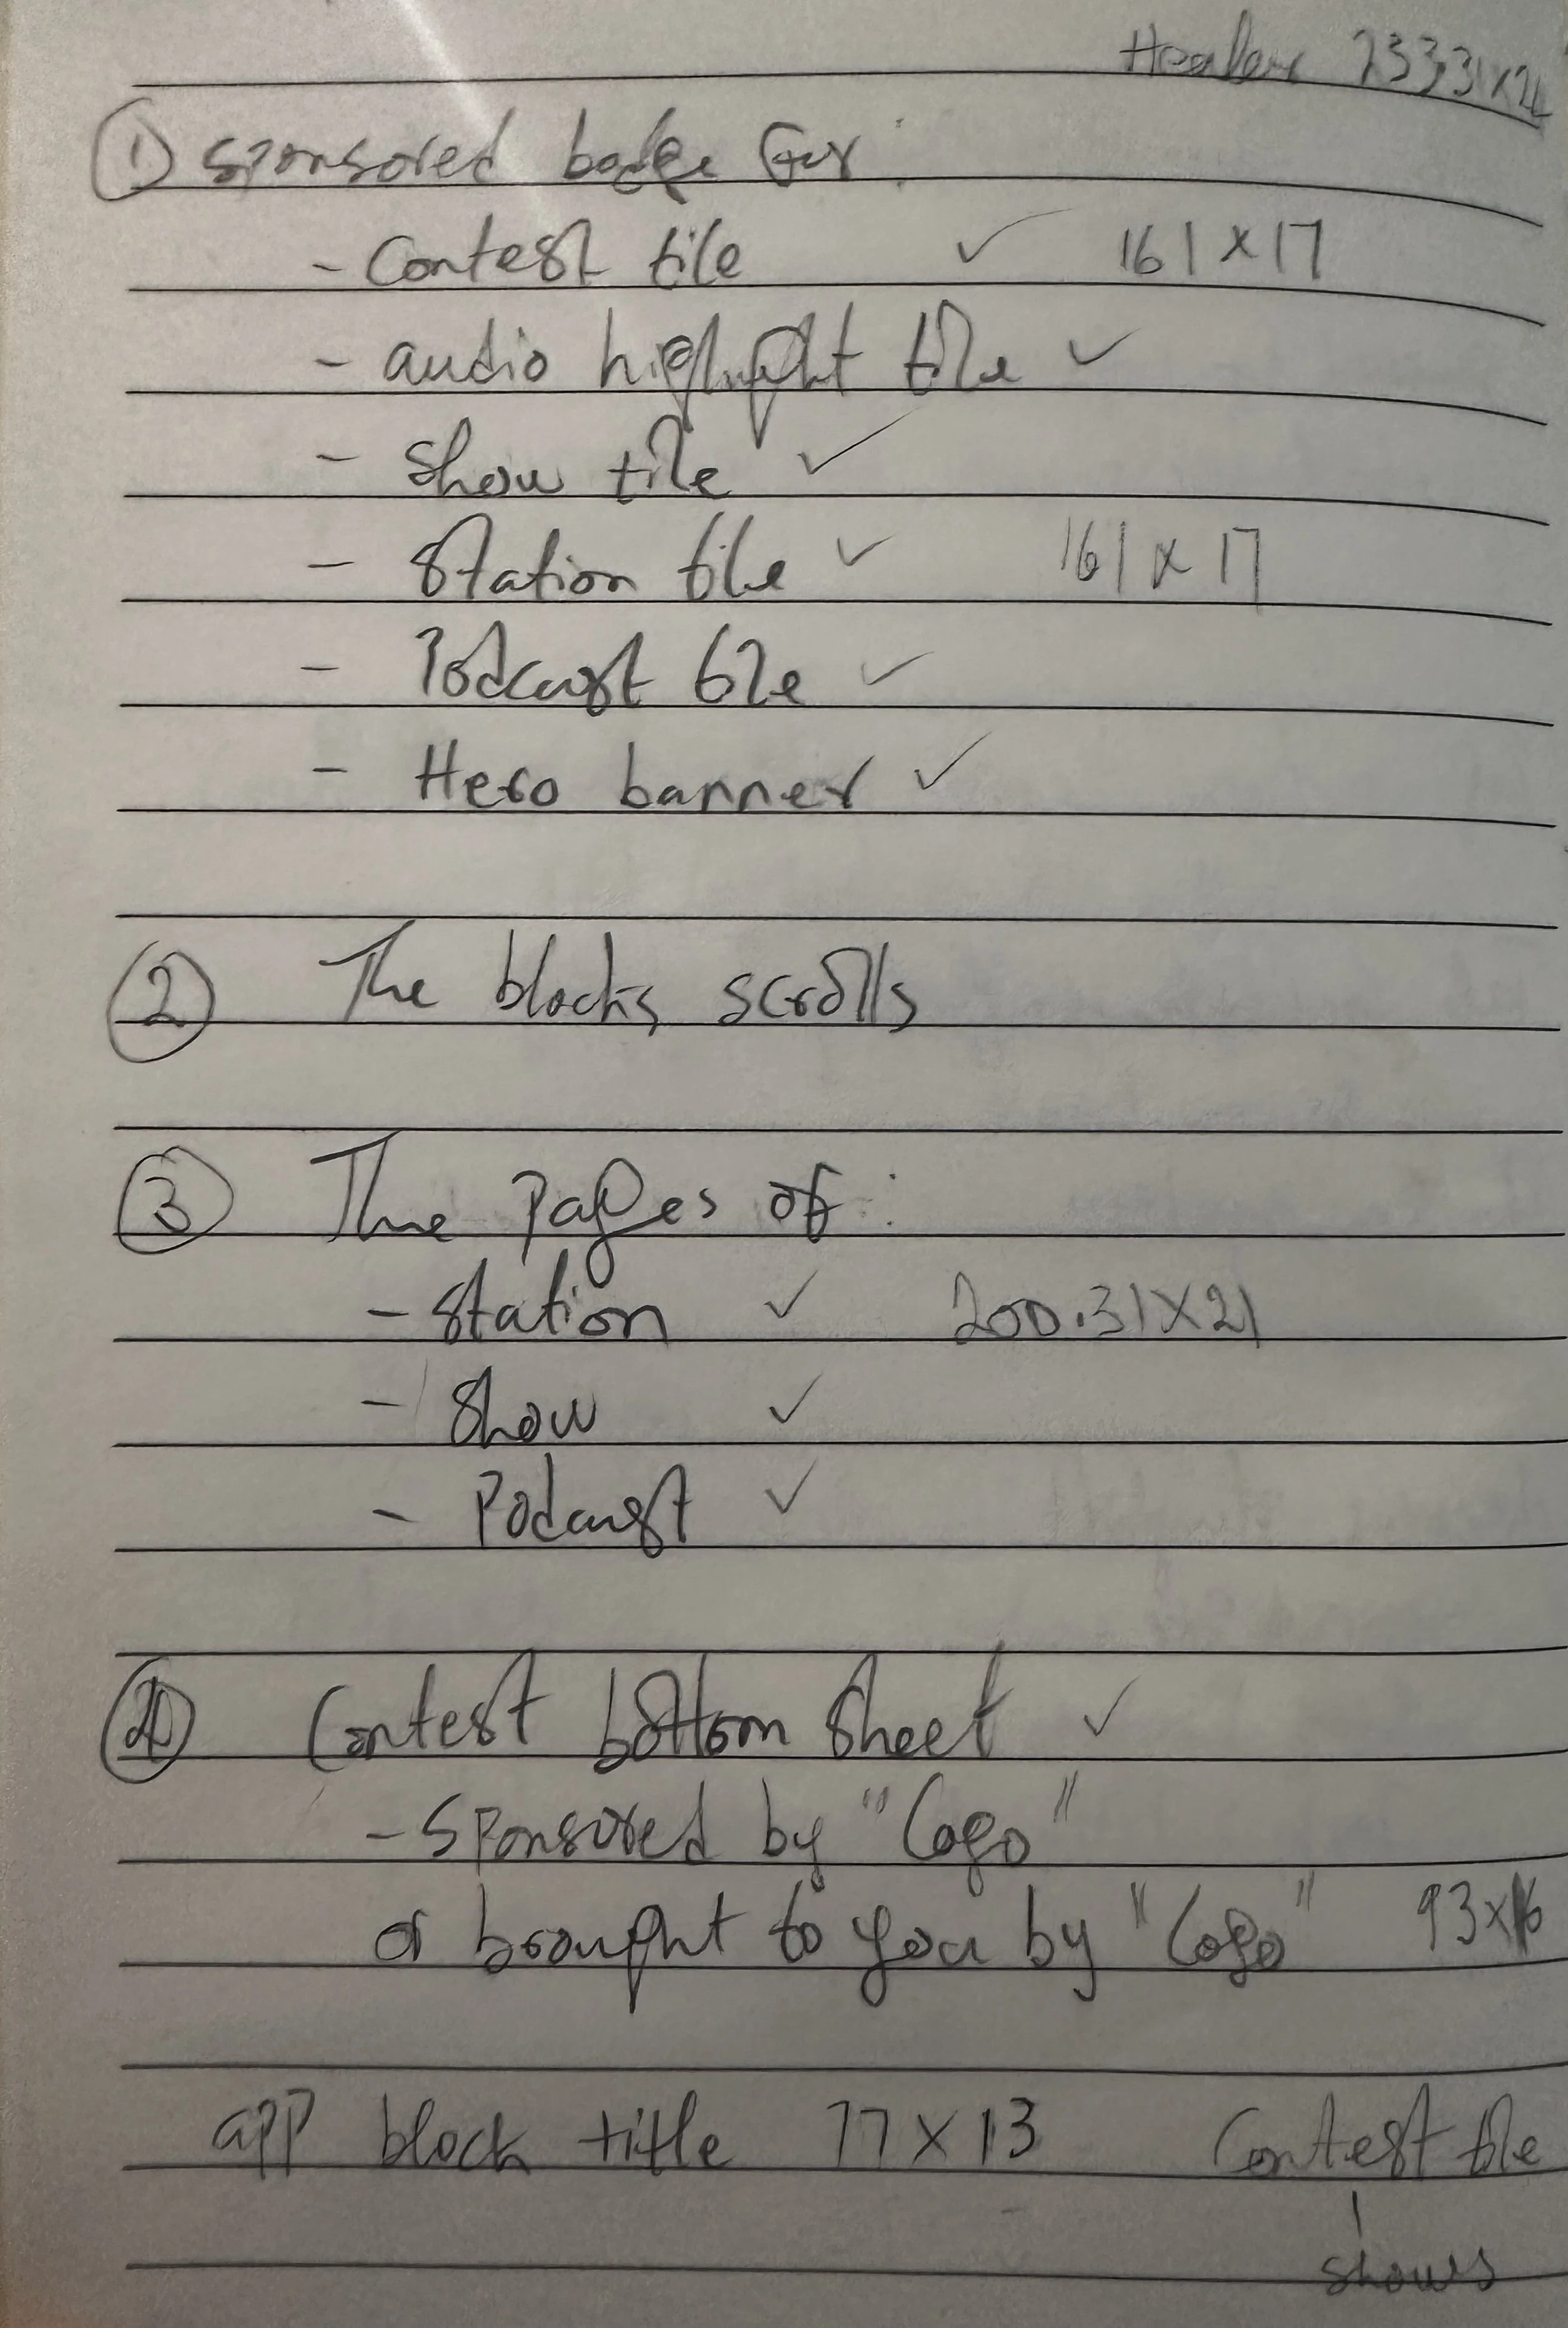 Header 233.31x21
① Sponsored badge for:
- Contest tile ✓ 161 x 17
- audio highlight tile ✓
- Show tile ✓
- Station tile ✓ 161 x 17
- Podcast tile ✓
- Hero banner ✓
② The blocks scrolls
③ The Pages of:
- Station ✓ 200.31X21
- Show ✓
- Podcast ✓
④ Contest bottom sheet ✓
- Sponsored by "Logo"
or brought to you by "Logo" 93x16
app block title 77 X 13 Contest tile
shows